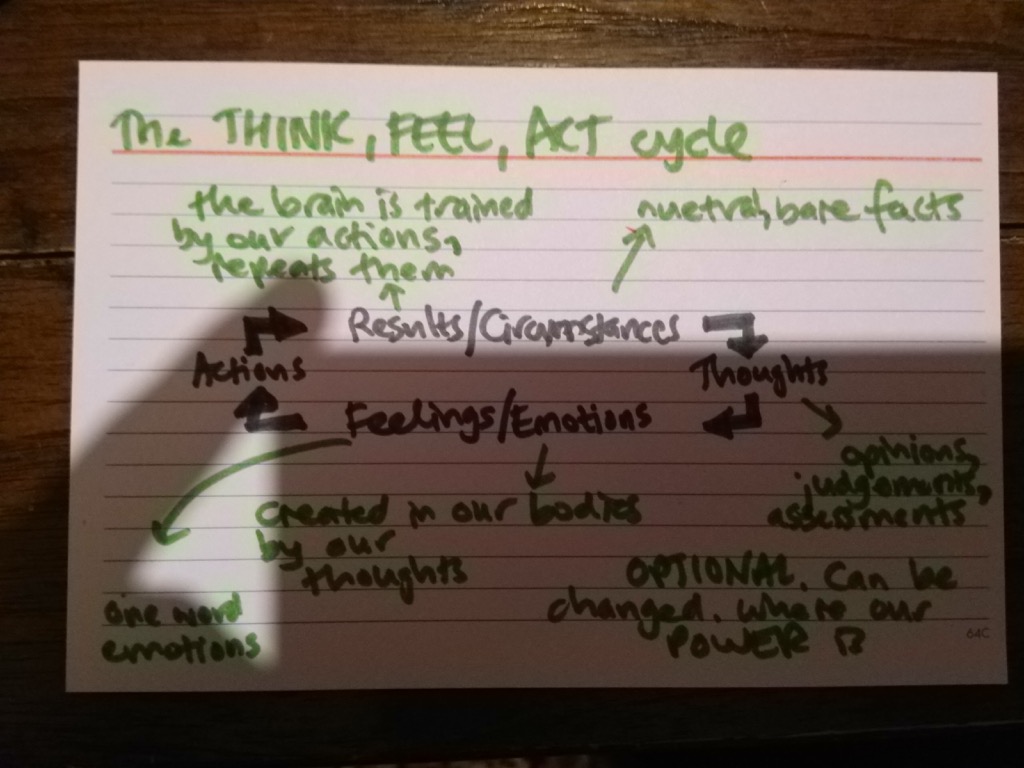 The THINK, FEEL, ACT cycle
the brain is trained
by our actions,
repeats them
nuetral, bare facts
Results/Circumstances
Actions
Thoughts
Feelings/Emotions
opinions,
judgements,
assessments
created in our bodies
by our
thoughts
OPTIONAL. Can be
changed. Where our
POWER is
one word
emotions
64C